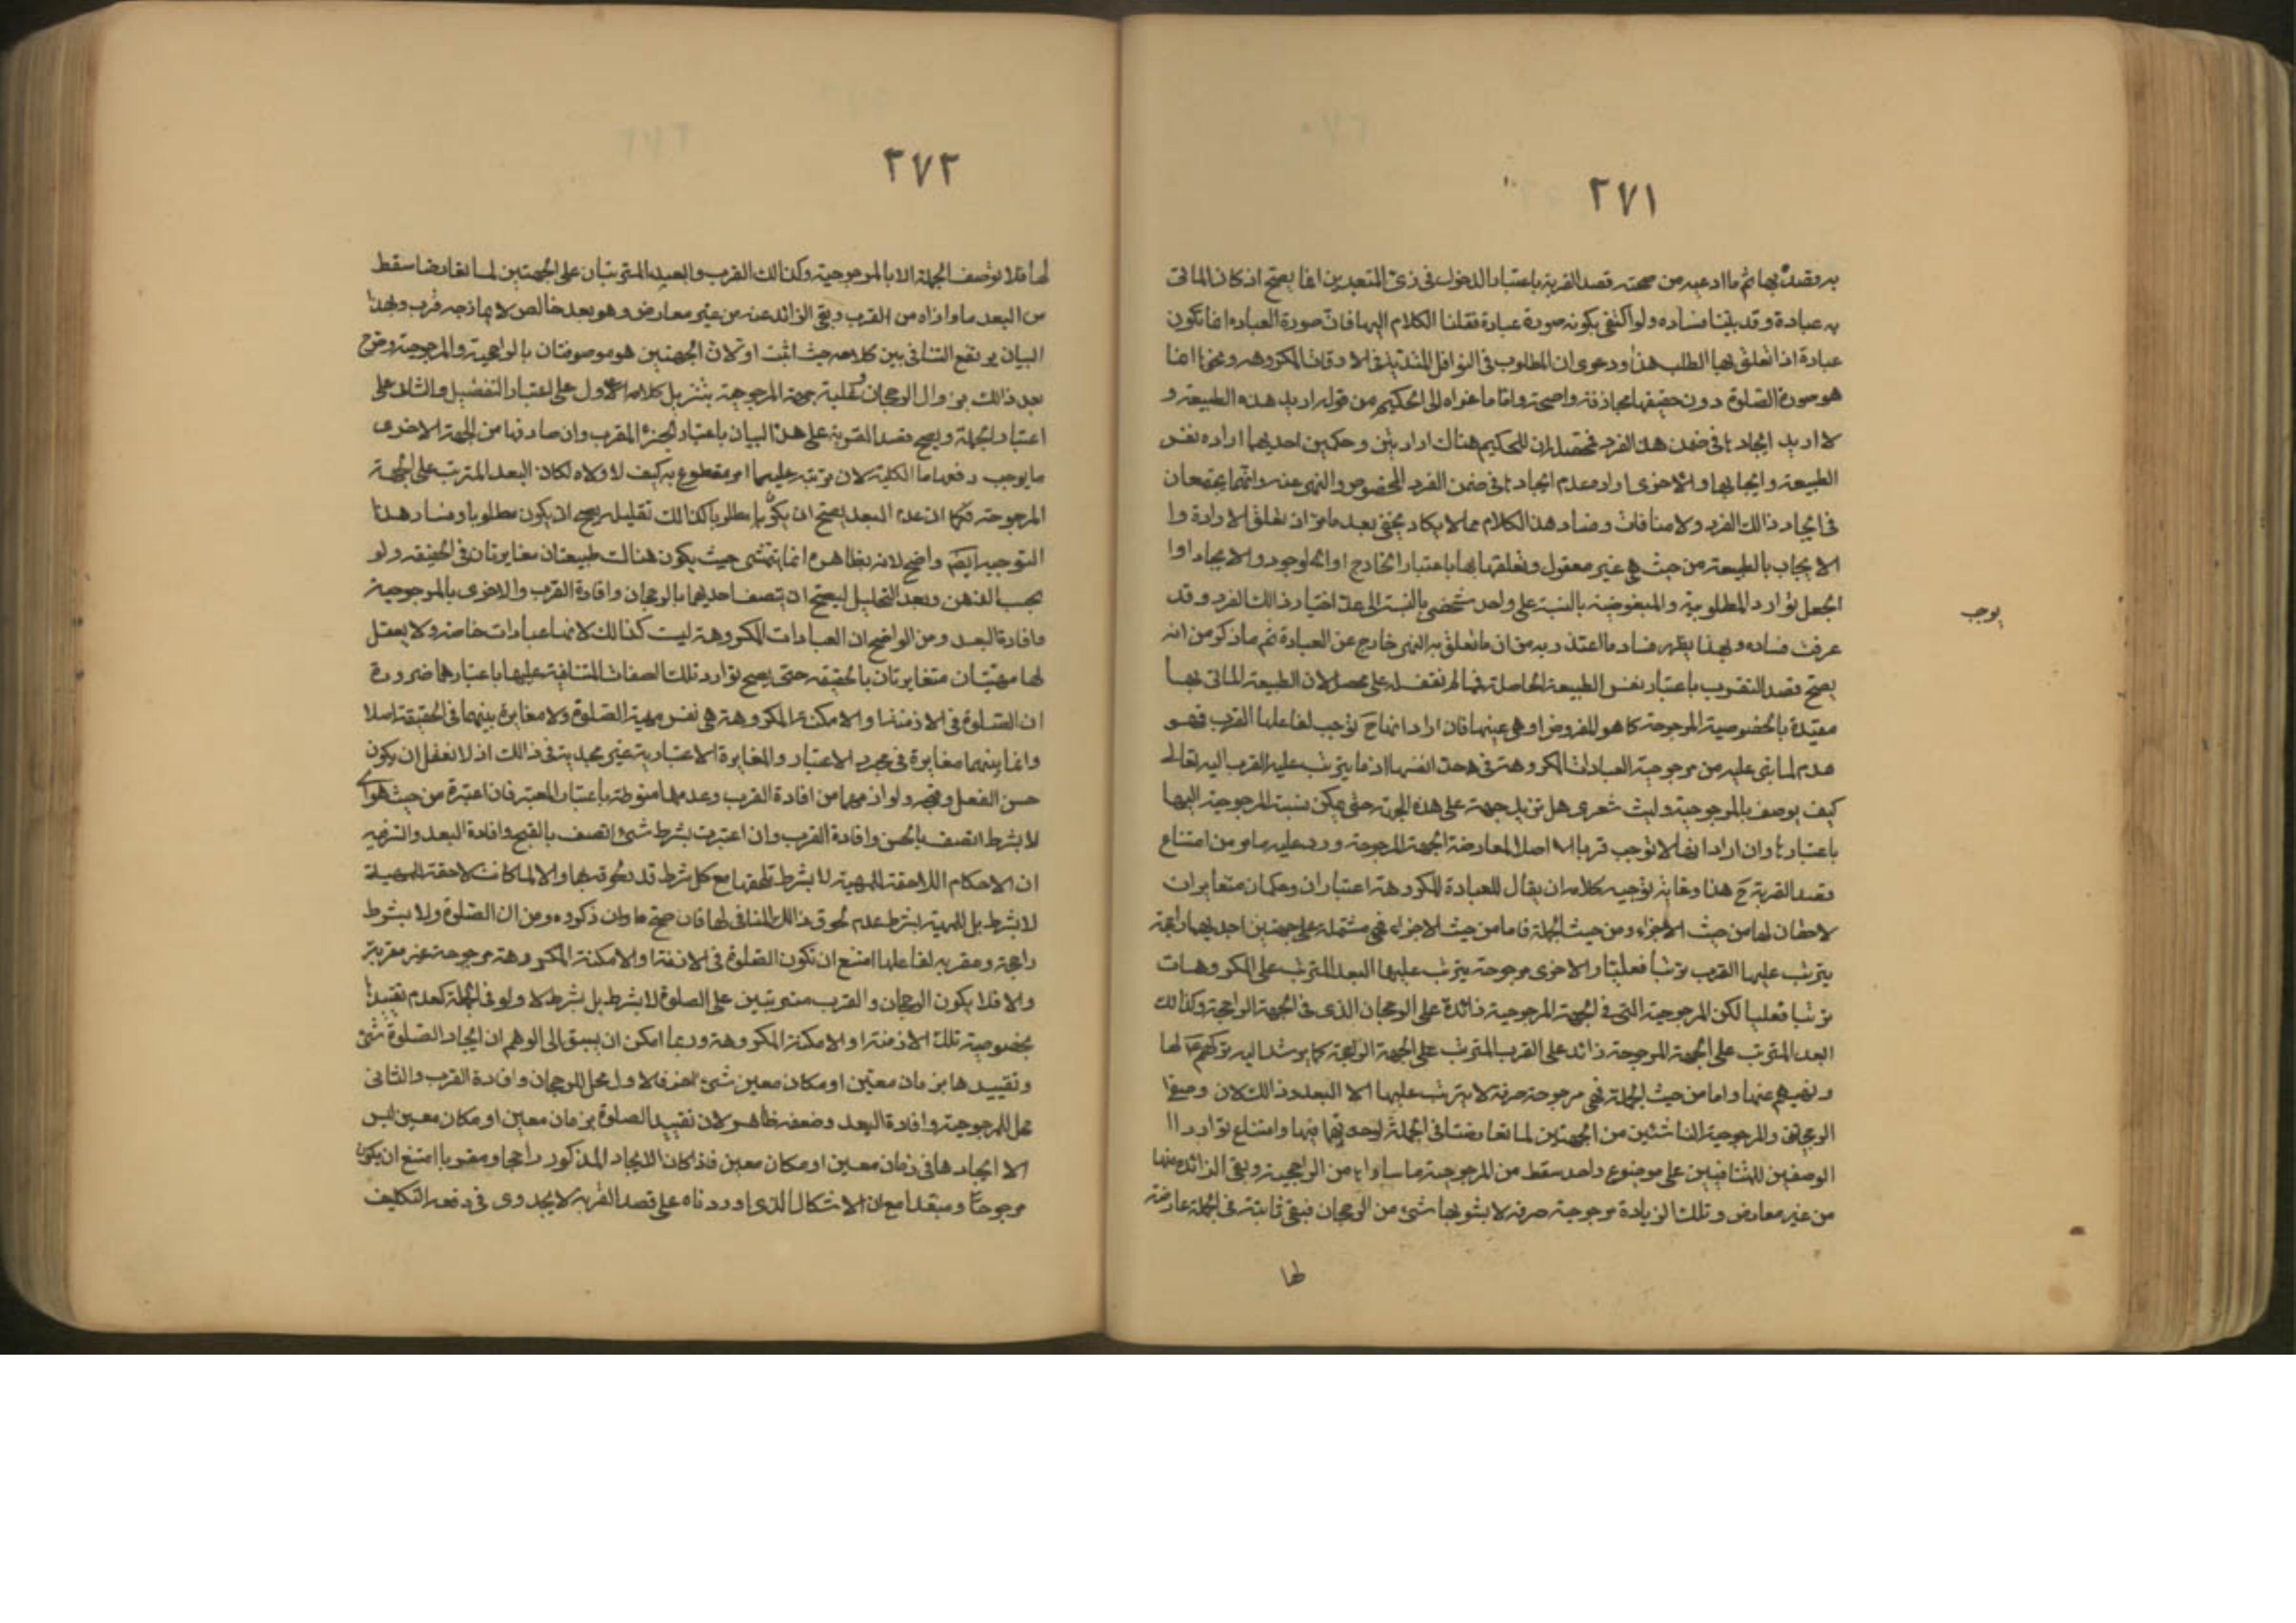 ٢٧١
به وقصده بها ثم ما ادعيه من صحته قصد القربة باعتبار الدخول في زىّ المتعبدين انما يصح اذ كان الماتى
به عبادة وقد بيّنا فساده ولو اكتفى بكونه صورة عبادة نقلنا الكلام اليها فان صورة العباده انما تكون
عبادة اذا تعلق بها الطلب هذا ودعوى ان المطلوب فى النوافل المبتدئة فى الاوقات المكروهه ونحوها انما
هو صورة الصّلوة دون حقيقتها مجازفة واضحة وامّا ما عزاه الى الحكيم من قوله اريد هذه الطبيعة و
لا اريد ايجادها فى ضمن هذا الفرد فمحصّله ان للحكيم هناك ارادتين وحكمين احديهما اراده نفس
الطبيعة وايجابها والاخرى اراده عدم ايجادها فى ضمن الفرد المخصوص والنهى عنه وانّهما يجتمعان
فى ايجاد ذالك الفرد ولا منافات وفساد هذا الكلام مما لا يكاد يخفى بعد ما مرّ ان تعلق الارادة وا
الايجاب بالطبيعة من حيث هى غير معقول وتعلقهما بها باعتبار الخارج او الوجود والايجاد او ا
الجعل توارد المطلوبية والمبغوضية بالنسبة على واحد شخصى بالنسبة الى علة اختيار ذالك الفرد وقد
يوجب
عرفت فساده وبهذا يظهر فساد ما اعتذر به من ان ما تعلق به النهى خارج عن العبادة ثم ما ذكره من انه
يصح قصد التقرب باعتبار نفس الطبيعة الحاصلة فمما لم نقف له على محصل لان الطبيعة الماتى بها
مقيّدة بالخصوصية المرجوحة كما هو المفروض او هى عينها فان اراد انها ح توجب لفاعلها القرب فهو
هدم لما بنى عليه من مرجوحية العبادات المكروهة فى حد انفسها اذ ما يترتب عليه القرب اليه تعالى
كيف يوصف بالمرجوحية وليت شعرى هل تزيل جهة على هذه الجهة حتى يمكن نسبة المرجوحية اليها
باعتبارها وان اراد انها لا توجب قربا اصلا لمعارضة الجهة المرجوحة ورد عليه ما مر من امتناع
قصد القربة ح هذا وغاية توجيه كلامه ان يقال للعبادة المكروهة اعتباران وحكمان متغايران
لاحقان لها من حيث الاجزاء ومن حيث الجملة فاما من حيث الاجزاء فهى مشتملة على جهتين احديهما راجحة
يترتب عليها القرب ترتبا فعليّا والاخرى مرجوحة يترتب عليها البعد المترتب على المكروهات
ترتبا فعليا لكن المرجوحية التى فى الجهة المرجوحية زائدة على الرجحان الذى فى الجهة الراجحة وكذالك
البعد المترتب على الجهة المرجوحة زائد على القرب المترتب على الجهة الراجحة كما يرشد اليه تركهم ع لها
ونهيهم عنها واما من حيث الجملة فهى مرجوحة صرفة لا يترتب عليها الا البعد وذالك لان وصفى
الرجحان والمرجوحية الناشئين من الجهتين لما تعارضتا فى الجملة لوحدتهما فيها وامتناع توارد ا
الوصفين المتنافيين على موضوع واحد سقط من المرجوحية ما ساواها من الراجحية وبقى الزائد منها
من غير معارض وتلك الزيادة مرجوحية صرفة لا يشوبها شئ من الرجحان فبقى ثابتة فى الجملة عارضة
لها
٢٧٢
لها فلا توصف الجملة الا بالمرجوحية وكذالك القرب والبعد المترتبان على الجهتين لما تعارضا سقط
من البعد ما وازاه من القرب وبقى الزائد عنه من غير معارض وهو بعد خالص لا يمازجه قرب وبهذا
البيان يرتفع التنافى بين كلامه حيث اثبت اولا ان الجهتين هو موصوفتان بالراجحية والمرجوحية وصرح
بعد ذالك بزوال الرجحان وغلبة جهة المرجوحية بتنزيل كلامه الاول على اعتبار التفصيل والثانى على
اعتبار الجملة ويصح قصد القربة على هذا البيان باعتبار الجزء المقرب وان صادفها من الجهة الاخرى
ما يوجب رفعها اما الكلية لان ترتبه عليهما امر مقطوع به كيف لا ولاه لكان البعد المترتب على الجهة
المرجوحة فكما ان عدم البعد يصح ان يكون مطلوبا كذالك تقليله يصح ان يكون مطلوبا وفساد هذا
التوجيه ايضا واضح لانه بظاهره انما يتمشى حيث يكون هناك طبيعتان مغايرتان فى الحقيقة ولو
بحسب الذهن وبعد التحليل ليصح ان يتصف احديهما بالرجحان وافادة القرب والاخرى بالمرجوحية
وافادة البعد ومن الواضح ان العبادات المكروهة ليست كذالك لانها عبادات خاصة ولا يعقل
لها مهيّتان متغايرتان بالحقيقة حتى يصح توارد تلك الصفات المتنافية عليها باعتبارهما ضرورة
ان الصّلوة فى الازمنة والامكنة المكروهة هى نفس مهية الصّلوة ولا مغايرة بينهما فى الحقيقة اصلا
وانما بينهما مغايرة فى مجرد الاعتبار والمغايرة الاعتبارية غير مجدية فى ذالك اذ لا نعقل ان يكون
حسن الفعل وقبحه ولوازمهما من افادة القرب وعدمها منوطة باعتبار المعتبر فان اعتبرة من حيث هو اى
لا بشرط اتصف بالحسن وافادة القرب وان اعتبرت بشرط شئ اتصف بالقبح وافادة البعد والسّرفيه
ان الاحكام اللاحقة للمهية لا بشرط تلحقها مع كل شرط قد يلحق بها والا لما كانت لاحقة للمهية
لا بشرط بل للمهية بشرط عدم لحوق ذالك المنافى لها فان صح ما ذكروه من ان الصّلوة ولا بشرط
راجحة ومقربه لفاعلها امتنع ان تكون الصّلوة فى الازمنة او الامكنة المكروهة مرجوحة غير مقربة
والا فلا يكون الرجحان والقرب مترتبين على الصلوة لا بشرط بل بشرط لا ولو فى الجملة كعدم تقييدها
بخصوصية تلك الازمنة او الامكنة المكروهة وربما امكن ان يسبق الى الوهم ان ايجاد الصّلوة شئ
وتقييدها بزمان معيّن او مكان معين شئ اخر فالاول محل للرجحان وافادة القرب والثانى
محل للمرجوحية وافادة البعد وضعفه ظاهر لان تقييد الصلوة بزمان معين او مكان معين ليس
الا ايجادها فى زمان معين او مكان معين فاذا كان الايجاد المذكور راجحا ومقربا امتنع ان يكون
مرجوحا ومبعّدا مع ان الاشكال الذى اوردناه على قصد القربة لا يجدوى فى دفعه التكليف